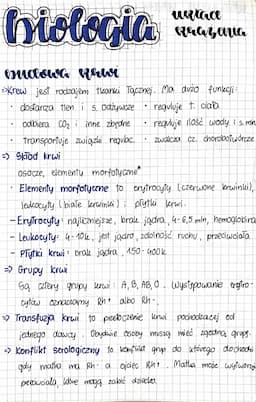 biologia układ
krążenia
budowa krwi
⇒Krew jest rodzajem tkanki łącznej. Ma dużo funkcji:
· dostarcza tlen i s. odżywcze · reguluje t. ciała
· odbiera CO₂ i inne zbędne · reguluje ilość wody i s. min
· transportuje związki regulac. · zwalcza cz. chorobotwórcze
⇒ Skład krwi
osocze, elementy morfotyczne*
· Elementy morfotyczne to erytrocyty (czerwone krwinki),
leukocyty (białe krwinki) i płytki krwi.
- Erytrocyty: najliczniejsze, brak jądra, 4-6,5 mln, hemoglobina
- Leukocyty: 4-10k, jest jądro, zdolność ruchu, przeciwciała
- Płytki krwi: brak jądra, 150-400k
⇒ Grupy krwi
Są cztery grupy krwi: A, B, AB, 0. Występowanie erytro-
cytów oznaczamy Rh+ albo Rh-.
⇒ Transfuzja krwi to przetoczenie krwi pochodzącej od
jednego dawcy. Obydwie osoby muszą mieć zgodną grupę.
⇒ Konflikt serologiczny to konflikt grup do którego dochodzi
gdy matka ma Rh- a ojciec Rh+. Matka może wytworzyć
przeciwciała, które mogą zabić dziecko.